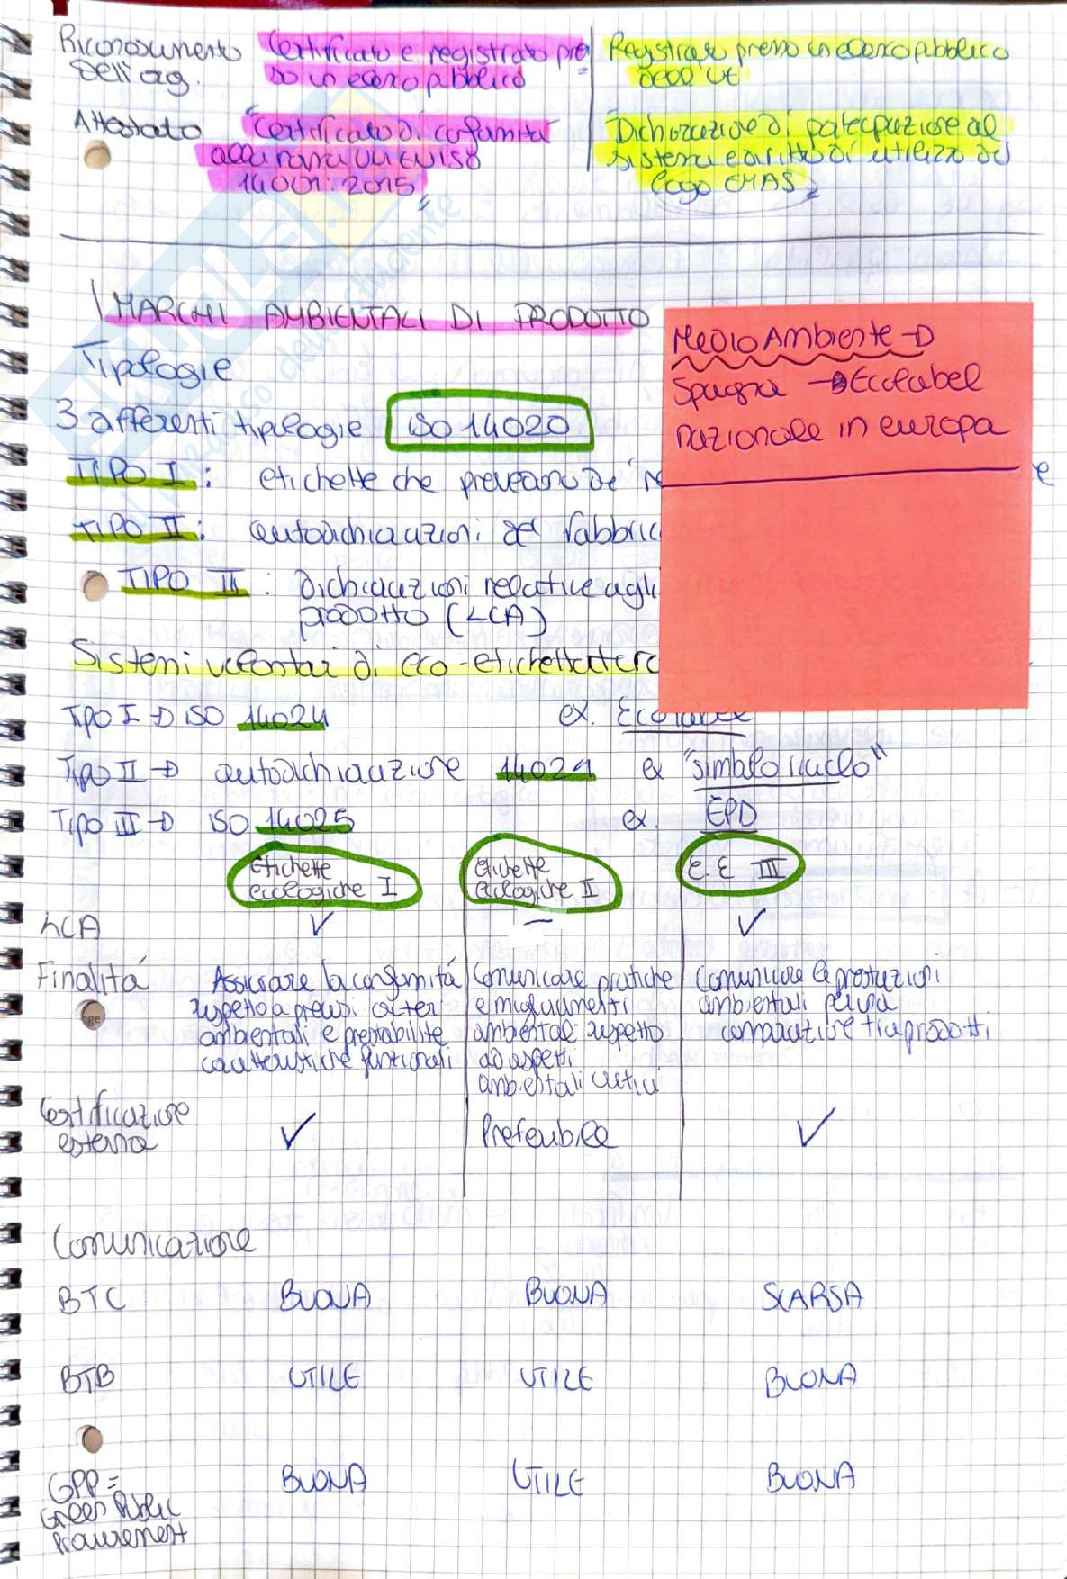 Riconoscimento Certificato e registrato pres Registrato presso un elenco pubblico
dell'ag. so un elenco pubblico dell'UE
Attestato Certificato di conformità Dichiarazione di partecipazione al
alla norma UNI EN ISO sistema e diritto di utilizzo del
14001:2015 logo EMAS
I MARCHI AMBIENTALI DI PRODOTTO
Tipologie
3 differenti tipologie ISO 14020
TIPO I: etichette che prevedono de
TIPO II: autodichiarazioni del fabbric
TIPO III: Dichiarazioni relative agli
prodotto (LCA)
Sistemi volontari di eco-etichettatura
Medio Ambiente →
Spagna → Ecolabel
nazionale in europa
Tipo I → ISO 14024 ex. Ecolabel
Tipo II → autodichiarazione 14021 ex "simbolo riciclo"
Tipo III → ISO 14025 ex. EPD
Etichette Etichette E.E III
ecologiche I ecologiche II
LCA ✓ - ✓
Finalità Assicurare la conformità Comunicare pratiche Comunicare le prestazioni
rispetto a precisi criteri e miglioramenti ambientali per una
ambientali e prestabilite ambientale rispetto comparazione tra prodotti
caratteristiche funzionali ad aspetti
ambientali critici
Certificazione ✓ Preferibile ✓
esterna
Comunicazione
BTC BUONA BUONA SCARSA
BTB UTILE UTILE BUONA
GPP = BUONA UTILE BUONA
Green Public
Procurement